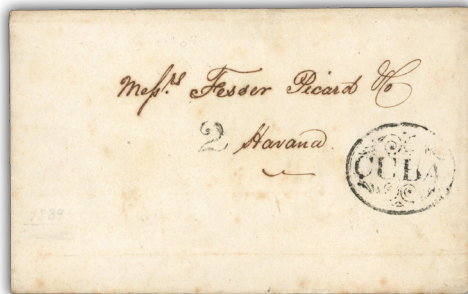 Messrs Fesser Picard & Co
2 Havana
CUBA
1839